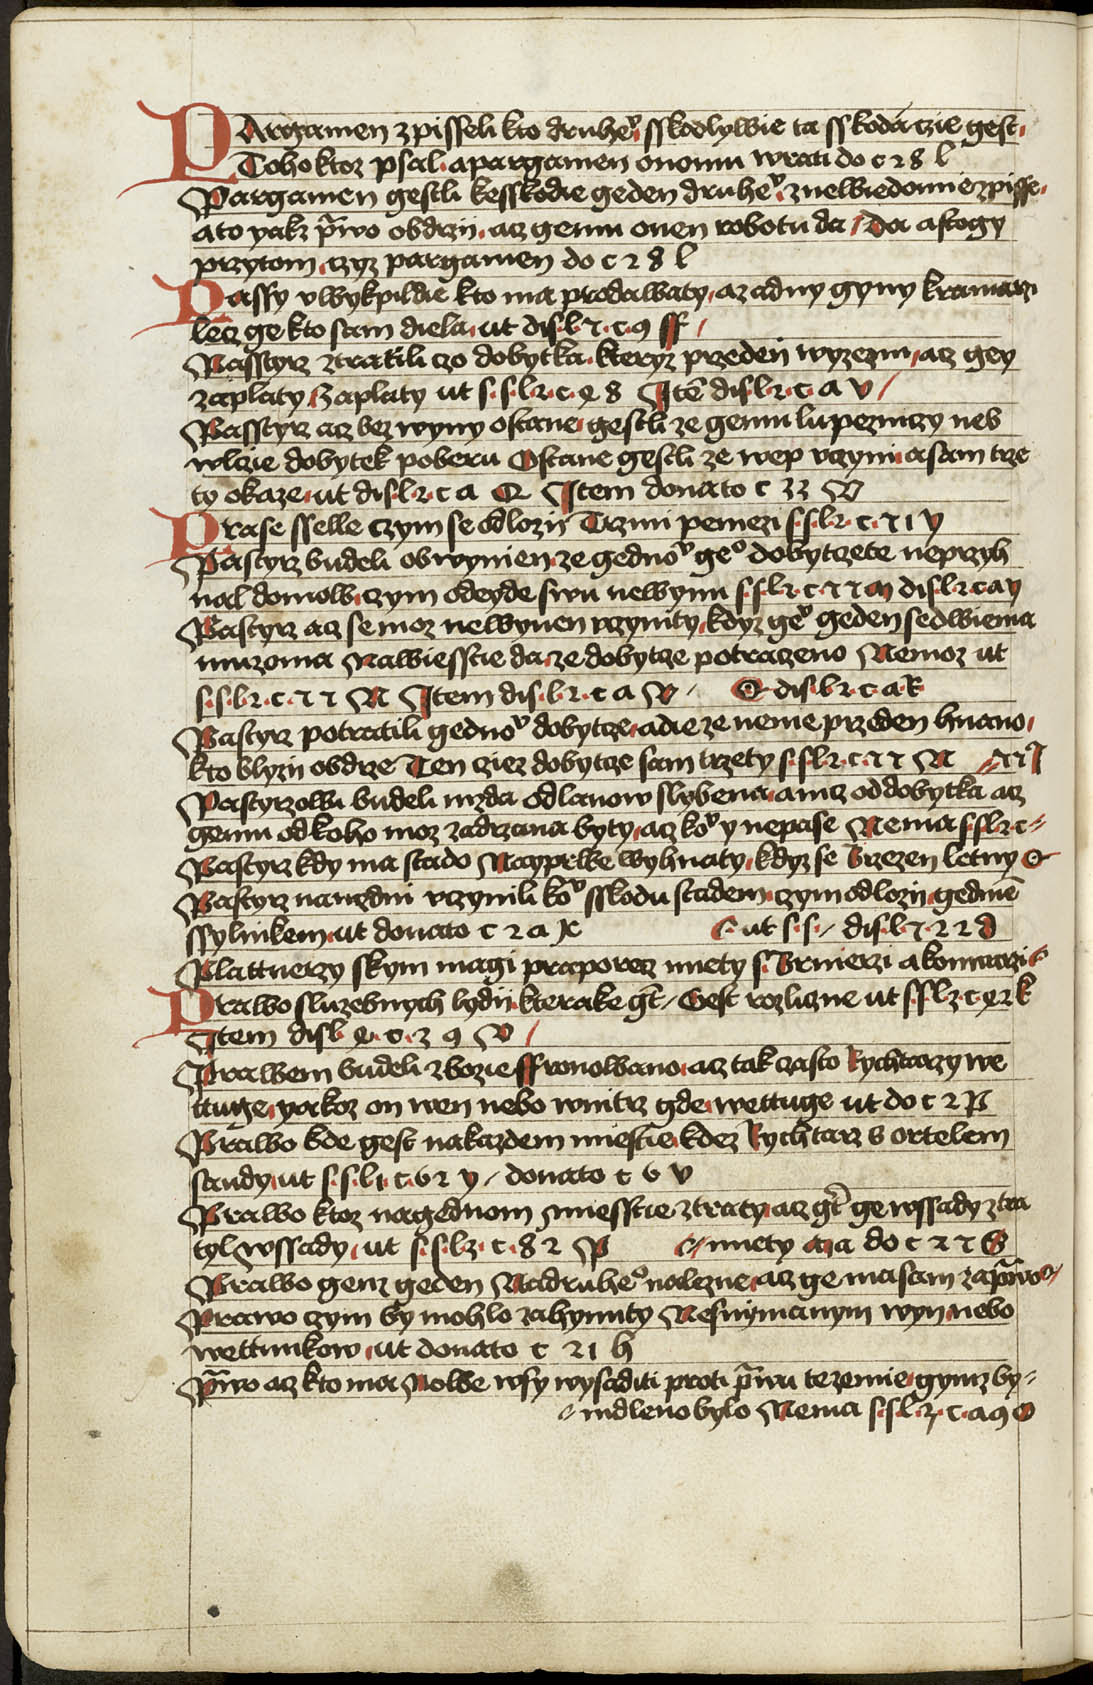 PArgamen zpisseli kto druheº sskodlywie ta sskoda czie gest
Toho ktoz psal a pargamen onomu wrati do c 2 8 l
Pargamen gestli kesskodie geden druheº z newiedomie zpisse
a to yakz p̃wo obdrzij acz gemu onen robotu da Da a stogy
przytom czyz pargamen do c 2 8 l
Passy v wykpildie kto ma prodawaty az adny gyny kramarzi
lecz ge kto sam diela ut dis l 7 c 9 ff
Passtyrz ztratili czo dobytka kteryz przeden wyzenu acz gey
zaplaty Zaplaty ut s s l 2 c 8 Itē dis l 2 c a v
Passtyrz acz bez wyny ostane gestli ze gemu lupezniczy neb
wlczie dobytek poberu Ostane gestli ze wep vczyni a sam trze
ty okaze ut dis l 2 c a Q Item donato c 33 W
Prase sselle czym se odlozij Trzmi penezi s s l 2 c 7 1 y
Pastyrz budeli obwynien ze gednoº geº dobytczete neprzyh
nal domow czym odeyde swu newynu s s l 2 c 7 7 m dis l 2 c a y
Pastyrz acz se moz newynen vczynity kdyz geº geden se dwiema
muzoma Nawiesstie da ze dobytcze potraczeno Nemoz ut
s s l 2 c 7 7 N Item dis l 2 c a W Q dis l 2 c a R
Pastyrz potratili gednoº dobytcze a die ze neme przeden hnano
kto blyzij obdrze Ten cziez dobytcze sam trzety s s l 2 c 7 7 N 7 7 I
Pastyrzowi budeli mzda od lanow slybena a nicz od dobytka acz
gemu od koho moz zadrzana byty acz koº y nepase Nema s s l 2 c
Pastyrz kdy ma stado Nayprwe wyhnaty kdyz se Brzezen letny
Pastyrz nauzdni vczynili koº sskodu stadem czym odlozij gednē
ssylinkem ut donato c 2 a k ut s s dis l 7 2 2 d
Plattnerzy skym magi praporecz mety s Brnierzi a konwarzi
Prawo sluzebnych lydij kterake gt̃ Gest rozliczne ut s s l 2 c 9 2 k
Item dis l 9 c 2 9 W
Prawem budeli zbozie ffronowano acz tak czasto Rychtarzy we
ttuge yakoz on wen nebo wnitrz gde wettuge ut do c 2 P
Prawo kde gest na kazdem miestie kdez Rychtarz s ortelem
saudy ut s s l 1 c 62 y donato c 6 v
Prawo ktoz na gednom miesstie ztraty acz gt̃ ge wssady ztra
tyl wssady ut s s l 2 c 82 P mety ma do c 2 7 S
Prawo genz geden Nadruheº nalezne acz ge ma sam zap̃wo
Prawo czym by mohlo zahynuty Nesnymanym wyn nebo
wettunkow ut donato c 21 h
P̃wo acz kto ma Nowe wsy wysaditi proti p̃wu te zemie gymz by
mdleno bylo Nema s s l 2 c a 9 o